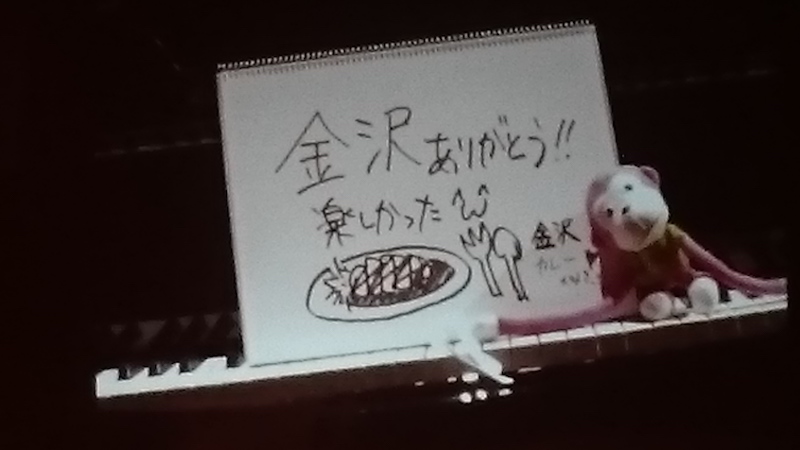 金沢ありがとう!!
楽しかった
金沢
カレー